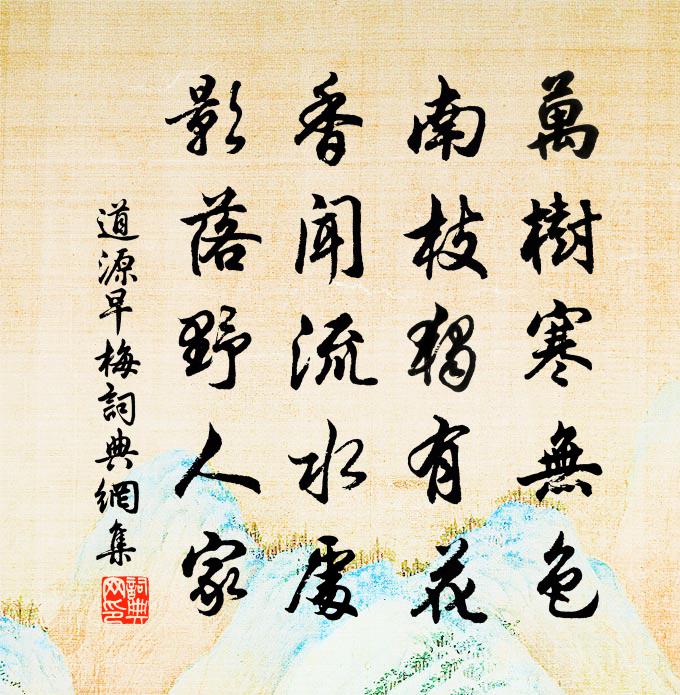 萬樹寒無色
南枝獨有花
香聞流水處
影落野人家
道源早梅詞典網集